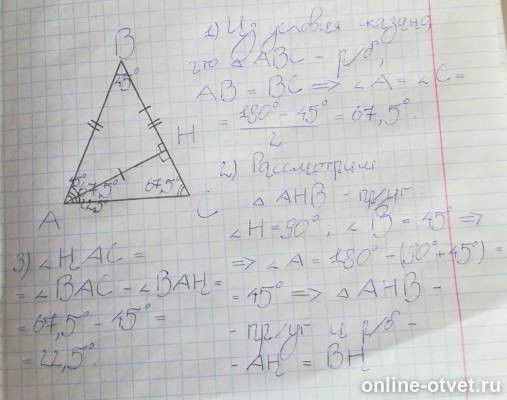 1) Из условия сказано,
что △ABC - р/б,
AB = BC => ∠A = ∠C =
= 180° - 45° / 2 = 67,5°.
B
45°
H
45°
67,5°
22,5°
67,5°
A
C
2) Рассмотрим
△AHB - пр/уг
∠H = 90°, ∠B = 45° =>
=> ∠A = 180° - (90° + 45°) =
= 45° => △AHB -
- пр/уг и р/б -
- AH = BH
3) ∠HAC =
= ∠BAC - ∠BAH =
= 67,5° - 45° =
= 22,5°.
online-otvet.ru